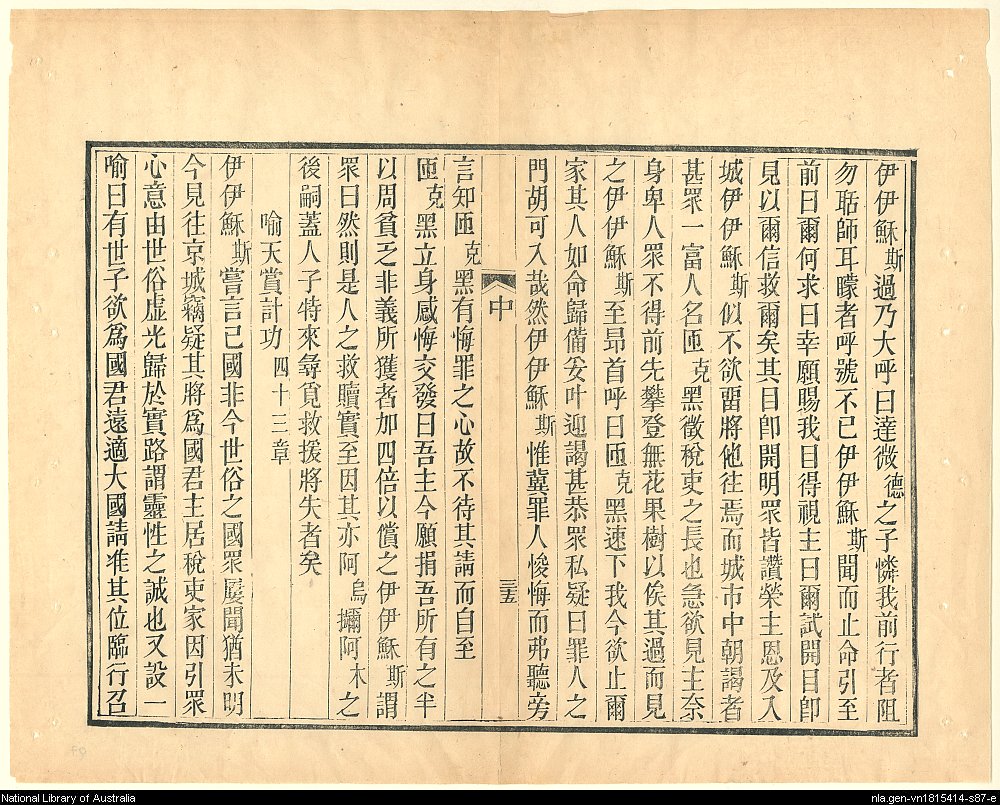 伊伊穌斯過乃大呼曰達微德之子憐我前行者阻
勿聒師耳矇者呼號不已伊伊穌斯聞而止命引至
前曰爾何求曰幸願賜我目得視主曰爾試開目卽
見以爾信救爾矣其目卽開明眾皆讚榮主恩及入
城伊伊穌斯似不欲畱將他往焉而城市中朝謁者
甚眾一富人名匝克黑徵稅吏之長也急欲見主奈
身卑人眾不得前先攀登無花果樹以俟其過而見
之伊伊穌斯至昻首呼曰匝克黑速下我今欲止爾
家其人如命歸備妥叶迎謁甚恭眾私疑曰罪人之
門胡可入哉然伊伊穌斯惟冀罪人悛悔而弗聽旁
中
三五
言知匝克黑有悔罪之心故不待其請而自至
匝克黑立身感悔交發曰吾主今願捐吾所有之半
以周貧乏非義所獲者加四倍以償之伊伊穌斯謂
眾曰然則是人之救贖實至因其亦阿烏攡阿木之
後嗣蓋人子特來尋覓救援將失者矣
喻天賞計功 四十三章
伊伊穌斯嘗言己國非今世俗之國眾屢聞猶未明
今見往京城竊疑其將爲國君主居稅吏家因引眾
心意由世俗虛光歸於實路謂靈性之誠也又設一
喻曰有世子欲爲國君遠適大國請准其位臨行召
National Library of Australia
nla.gen-vn1815414-s87-e